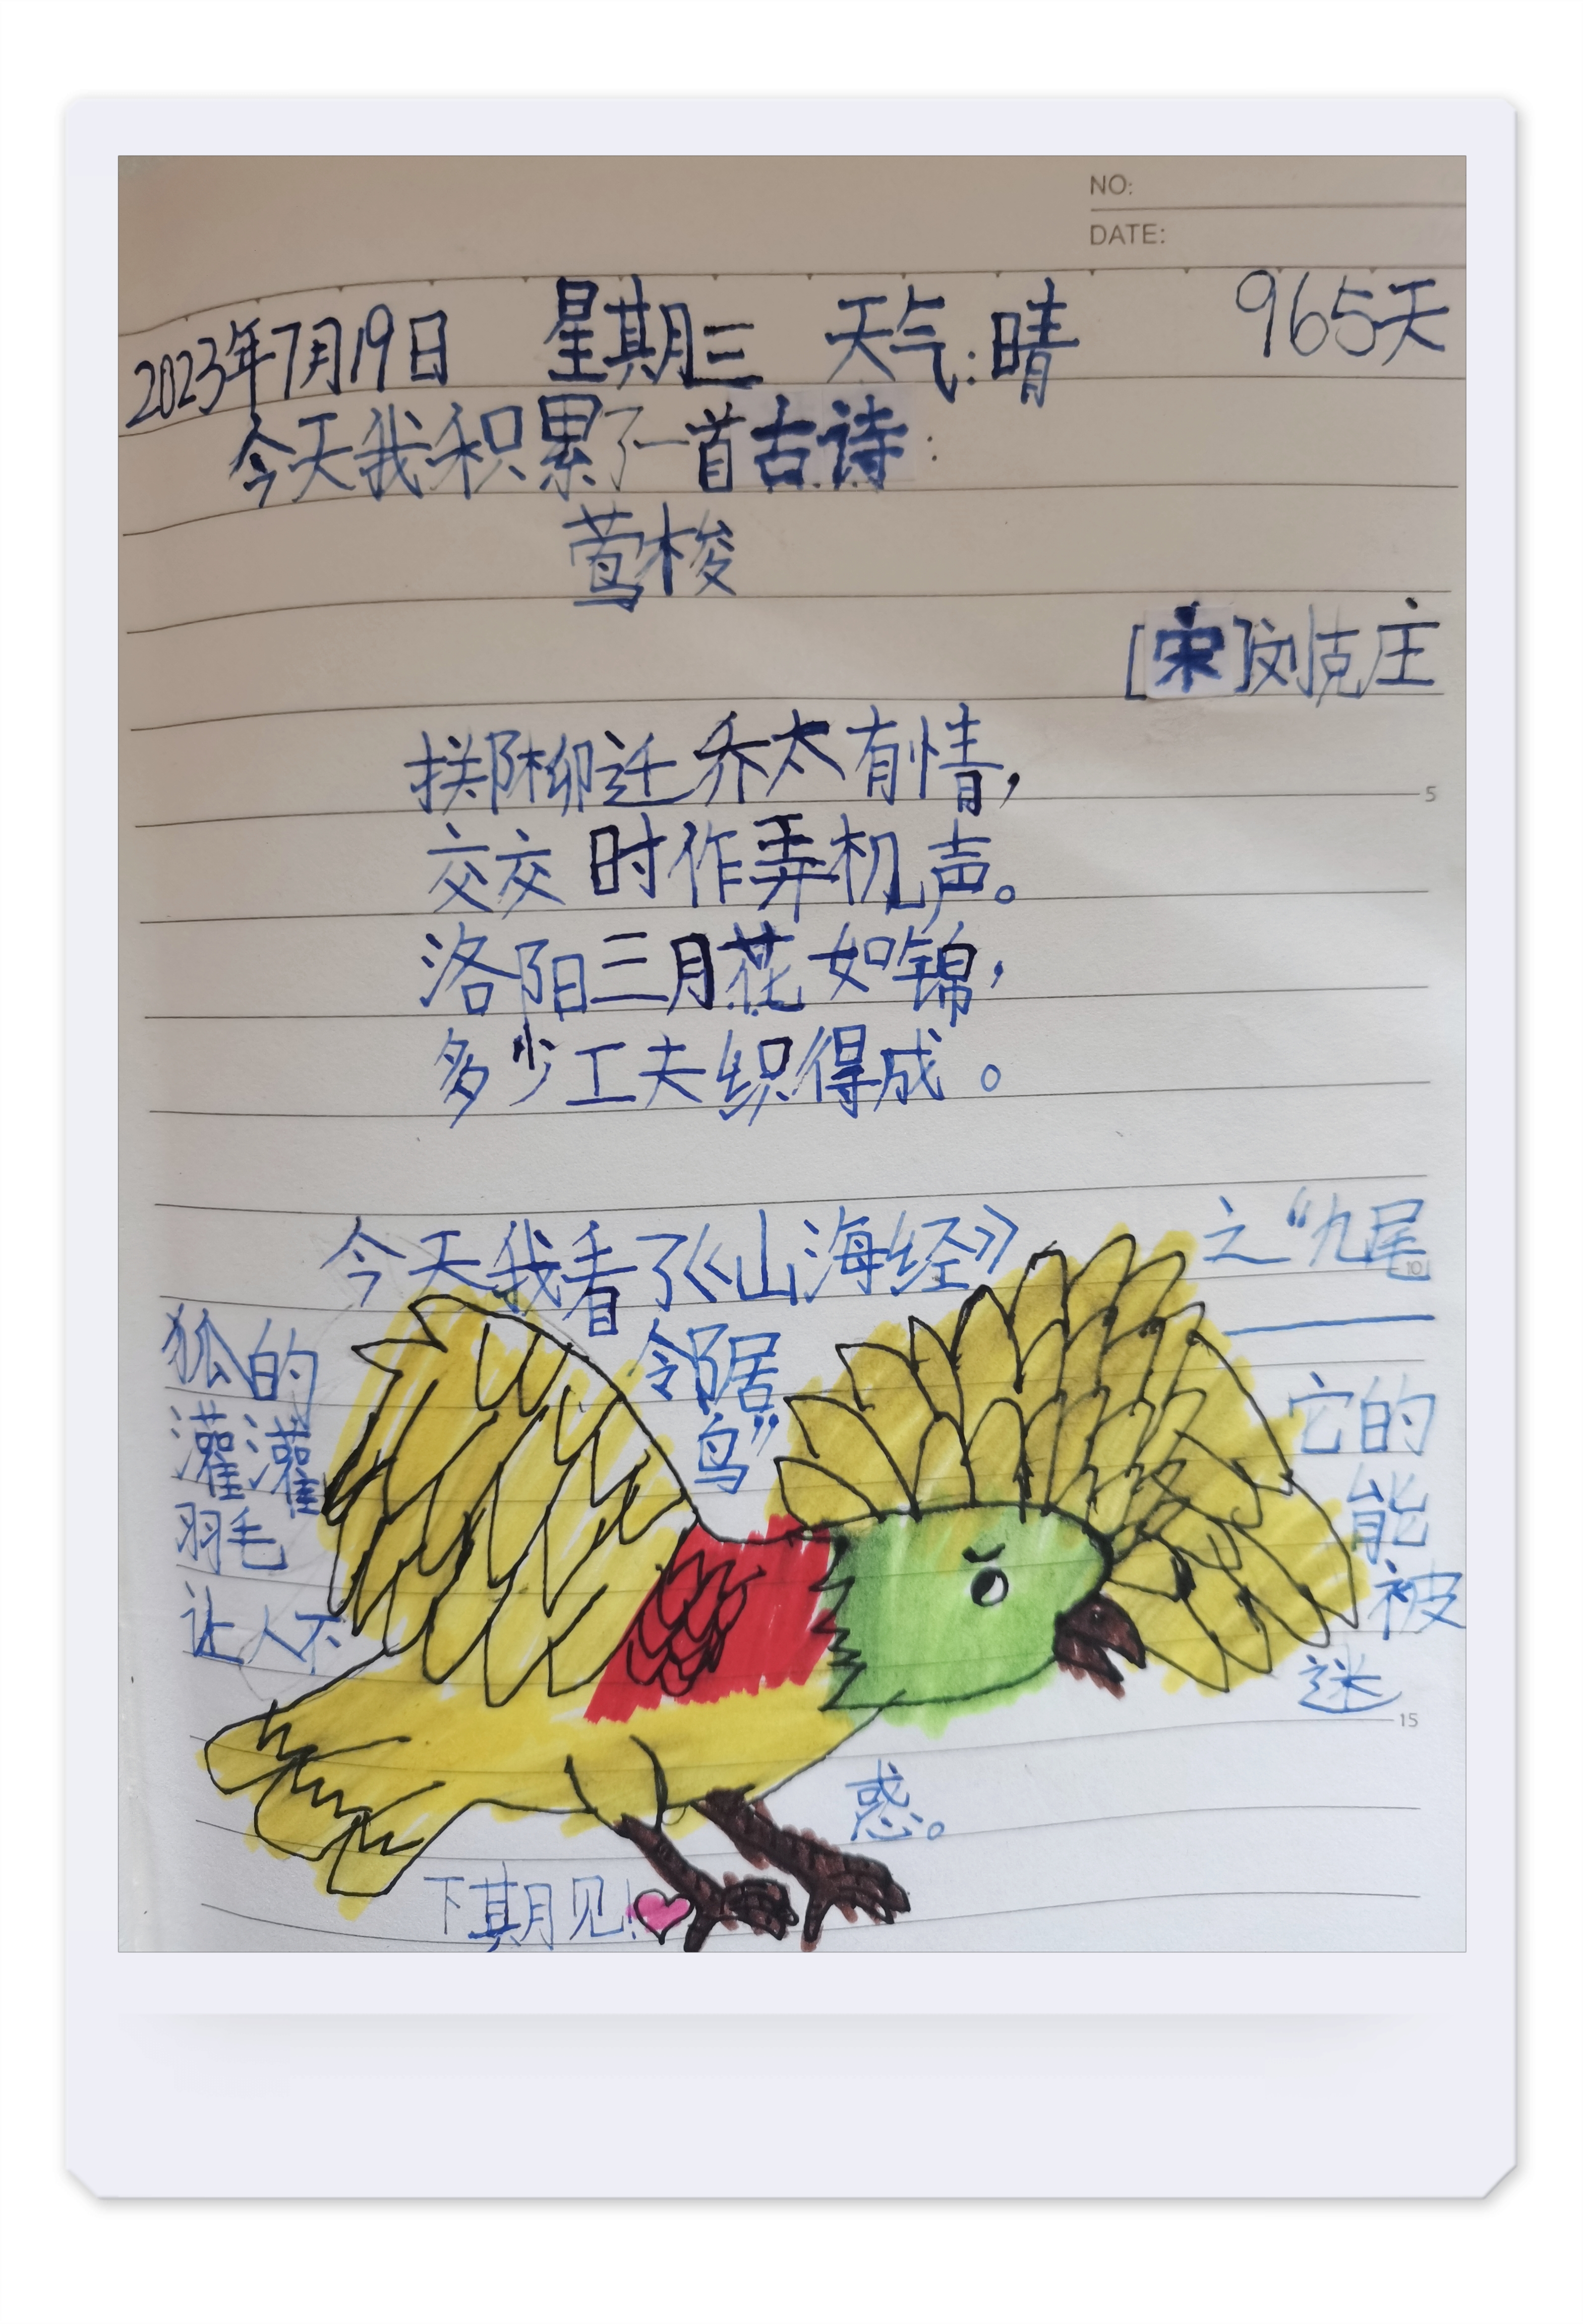 NO:
DATE:
2023年7月19日 星期三 天气:晴 965天
今天我积累了一首古诗:
莺梭
[宋]刘克庄
掷柳迁乔太有情,
交交时作弄机声。
洛阳三月花如锦,
多少工夫织得成。
5
今天我看了《山海经》之“九尾
10
狐的邻居——
灌灌鸟”它的
羽毛能被
让人不迷
15
惑。
下期见!